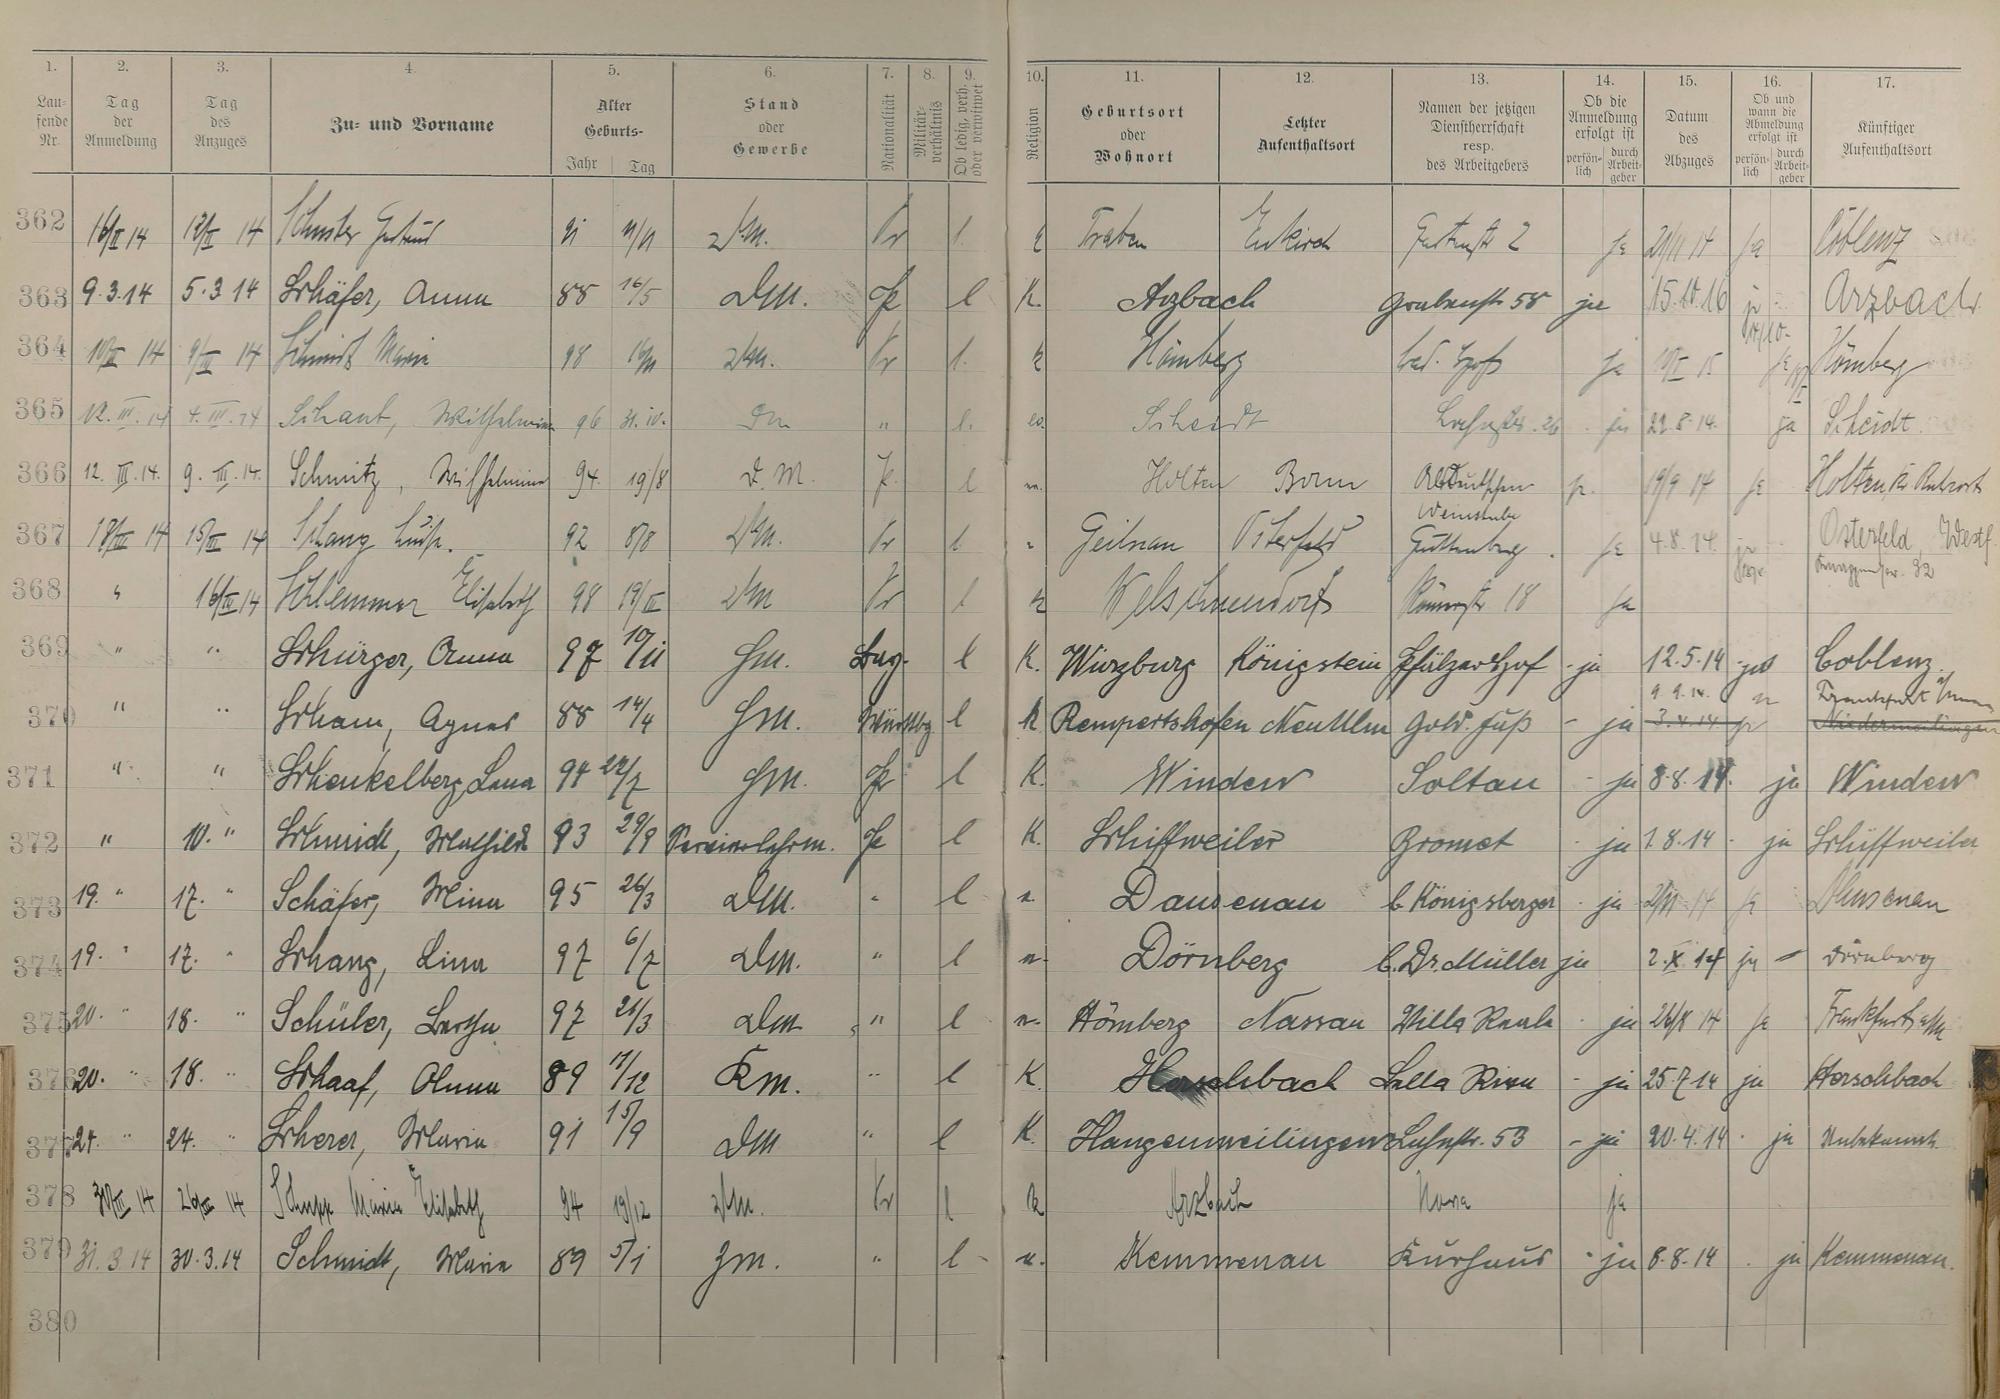 1. 2. 3. 4. 5. 6. 7. 8. 9. 10. 11. 12. 13. 14. 15. 16. 17.
Lau-fende Nr. Tag der Anmeldung Tag des Anzuges Zu- und Vorname Alter Geburts- Jahr Tag Stand oder Gewerbe Nationalität Militär-verhältnis Ob ledig, verh. oder verwitwet Religion Geburtsort oder Wohnort Letzter Aufenthaltsort Namen der jetzigen Dienstherrschaft resp. des Arbeitgebers Ob die Anmeldung erfolgt ist persön-lich durch Arbeit-geber Datum des Abzuges Ob und wann die Abmeldung erfolgt ist persön-lich durch Arbeit-geber Künftiger Aufenthaltsort
362 16/II 14 12/II 14 Schuster Gertrud 91 DM. Pr l. Traben Enkirch 2 ja 14 ja Coblenz
363 9.3.14 5.3 14 Schäfer, Anna 88 16/5 DM. Pr l K. Arzbach Grabenstr 58 ja 15.10.16 ja Arzbach
364 10/III 14 9/III 14 Schmidt Maria 98 DM. Pr l. k Hömberg ja 15 ja Hömberg
365 12. III. 14 4. III. 14 Schant, Wilhelmine 96 31. 10. Dm " l. ev. Scheidt 26 ja 22.8.14. ja Scheidt
366 12. III. 14. 9. III. 14. Schmitz, Wilhelmine 94 19/8 D. M. P. l Holten Bonn Altdeutschen Weinstube ja 19/9 14 ja Holten, Kr Ruhrort
367 18/III 14 15/III 14 Schang Luise. 92 8/8 DM. Pr l " Geilnau Osterfeld Guttenberg ja 4.8.14. ja Osterfeld, Westf. 82
368 " 16/III 14 Schlemmer Elisabeth 98 19/II DM Pr l k Welschneudorf Römerstr 18 ja
369 " " Schürger, Anna 97 10/11 Hm. Bay. l K. Würzburg Königstein Pfälzer Hof - ja 12.5.14 ja Coblenz.
370 " " Scham, Agnes 88 14/4 Hm. Württbg l K Rempertshofen Neu Ulm Gold. Fuß - ja 9.9.14. 3.4.14 Frankfurt Niedermeilingen
371 " " Schenkelberg, Lena 94 24/7 Hm. Pr l K. Winden Soltau - ja 8.8.14. ja Winden
372 " 10. " Schmidt, Mathild 93 29/9 Pr l K. Schiffweiler Bromet ja 1.8.14 ja Schiffweiler
373 19. " 17. " Schäfer, Mina 95 26/3 DM. " l Dausenau b. Königsberger ja 14 ja Dausenau
374 19. " 17. " Schang, Lina 97 6/7 DM. " l Dörnberg b. Dr. Müller ja 2.X.14 ja Dörnberg
375 20. " 18. " Schüler, Bertha 97 21/3 DM " l Hömberg Nassau Villa ja 26/8 14 ja Frankfurt a/M
376 20. " 18. " Schaaf, Anna 89 17/12 Km. " l K. Herschbach ja 25.7.14 ja Herschbach
377 24. " 24. " Scherer, Maria 91 15/9 DM " l K. Hangenmeilingen Lahnstr. 53 - ja 20.4.14 ja Unbekannt
378 30/III 14 26/III 14 Schupp Maria Elisabeth 94 19/12 DM. Pr l k Arzbach ja
379 31.3.14 30.3.14 Schmidt, Maria 89 5/1 Zm. " l - Kemmenau Kurhaus ja 8.8.14 ja Kemmenau.
380